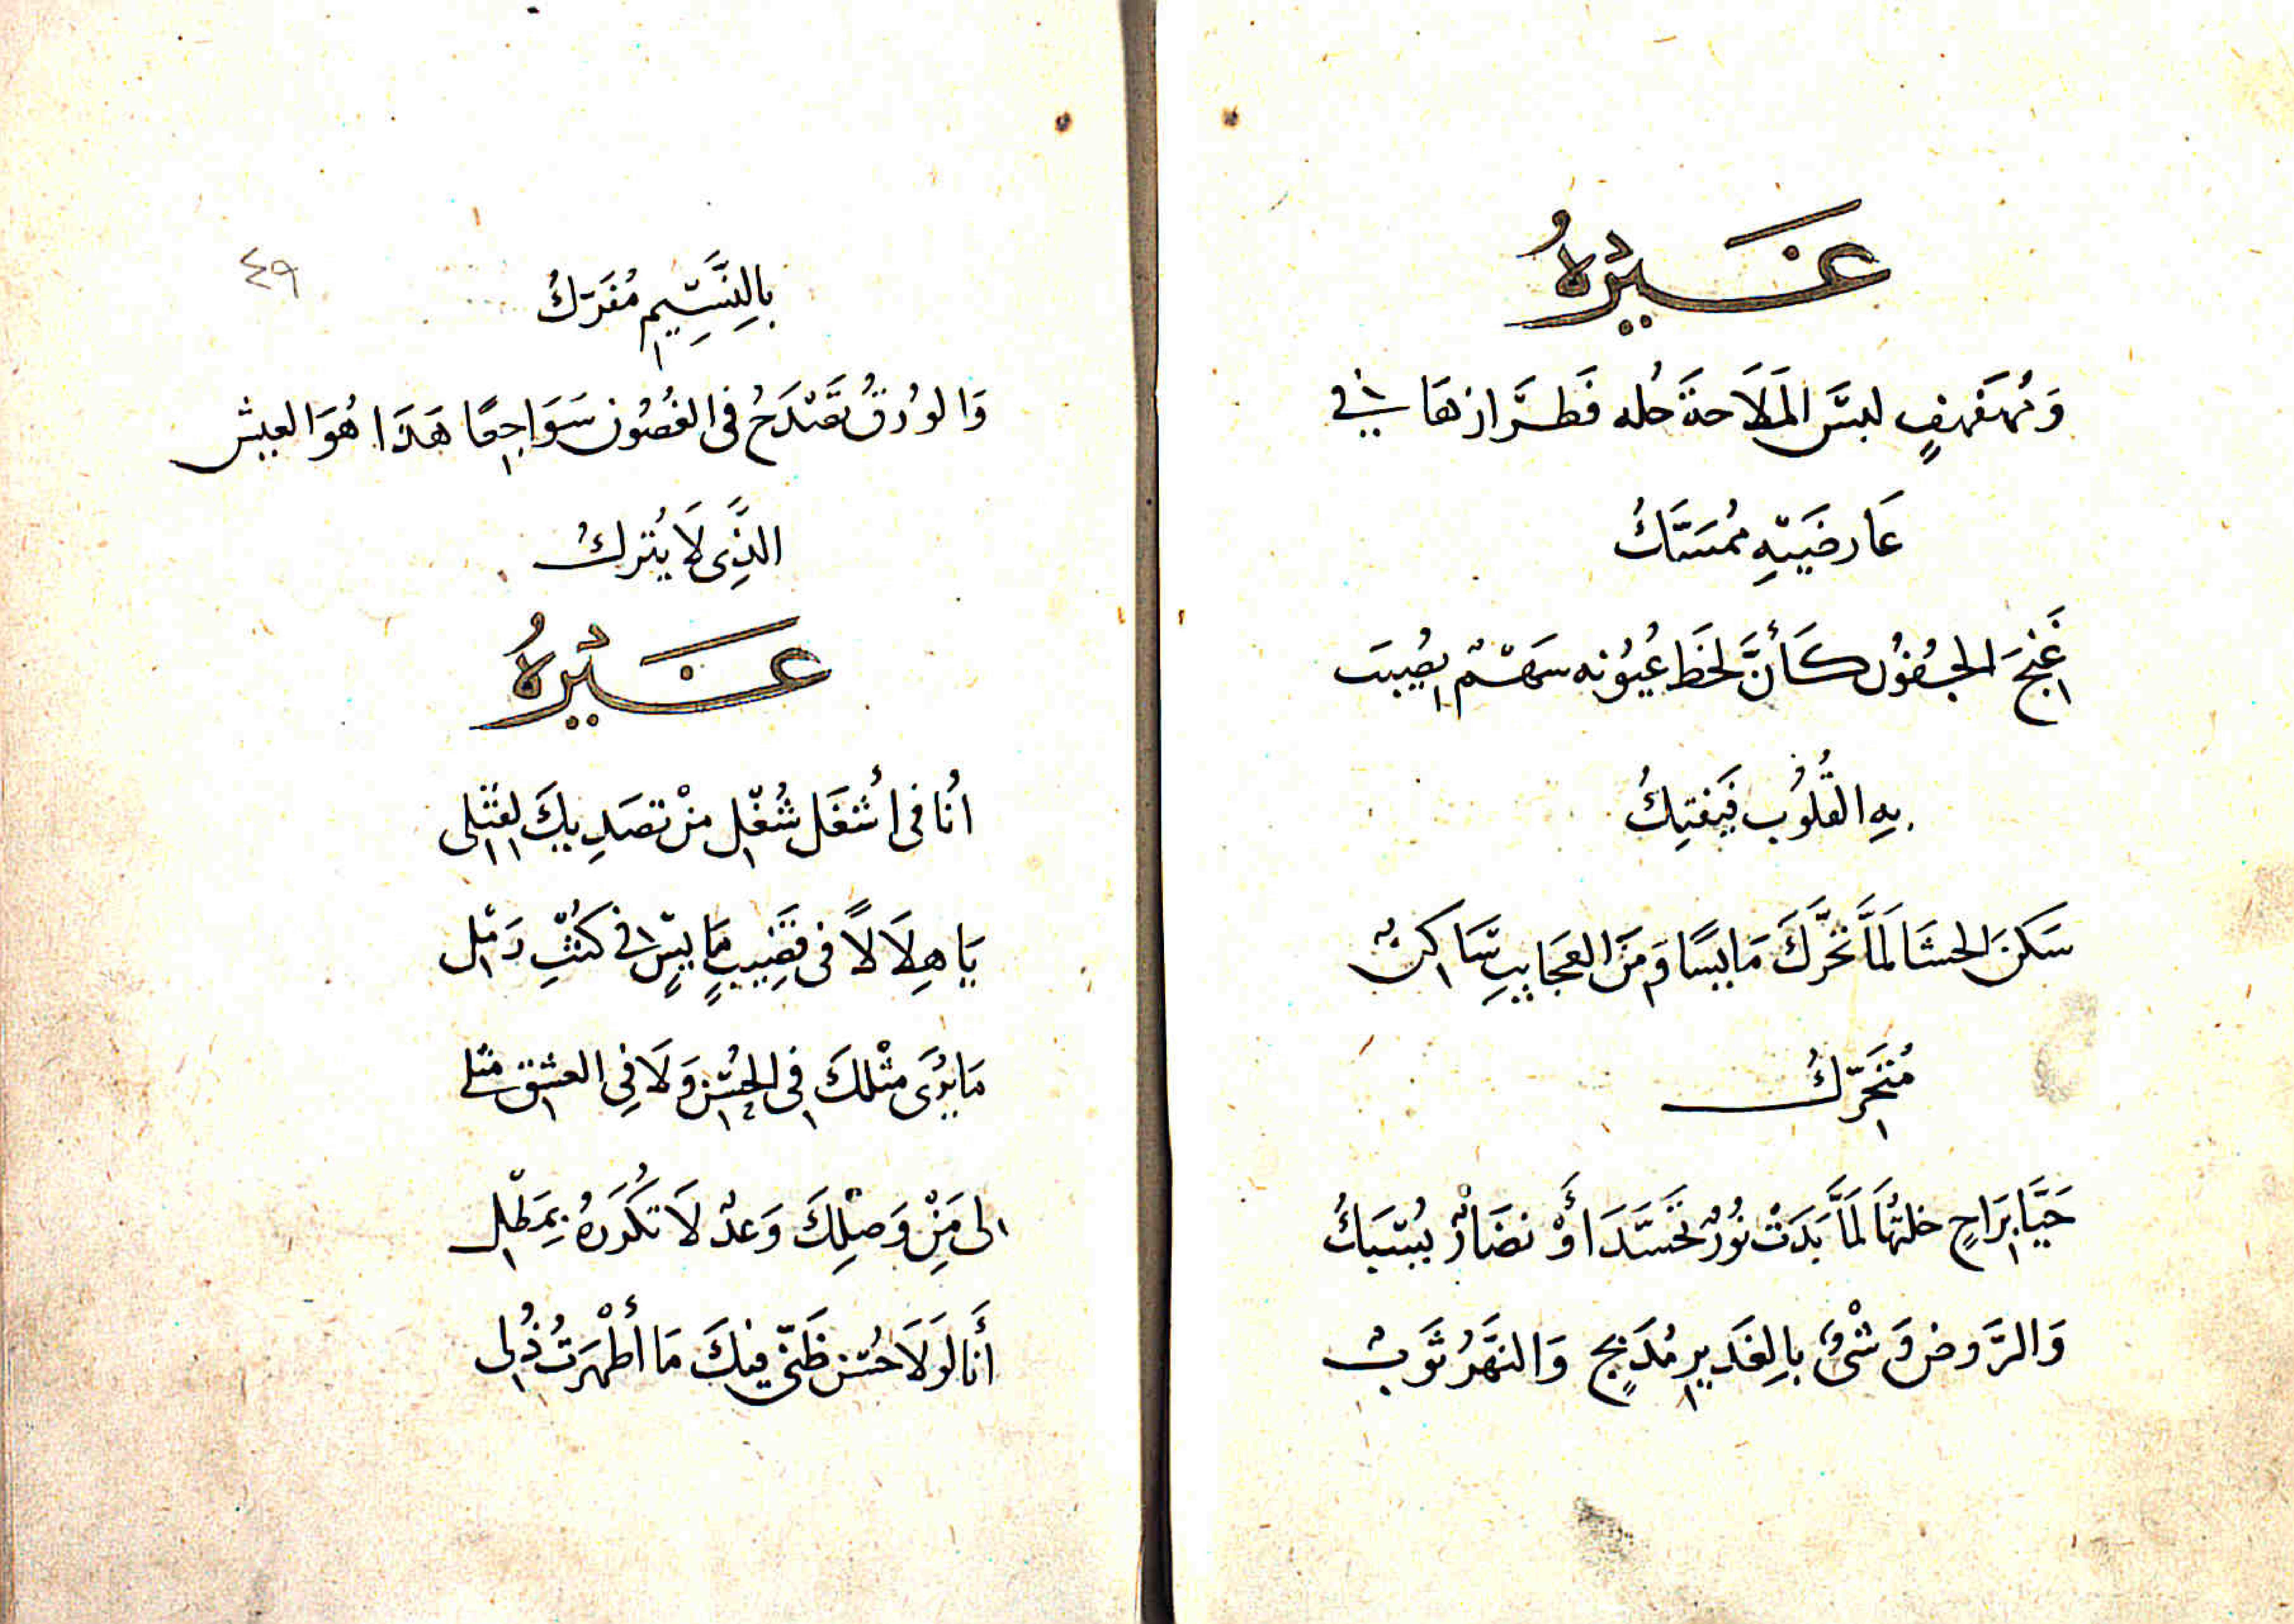 غَيْرُهُ
وَمُهَفْهَفٍ لبسَ المَلَاحَةَ حُله فَطَرَّازهَا فِي
عَارضَيْهِ مُمَسَّكُ
غَنِجَ الجُفُون كَأَنَّ لحَظَ عُيُونه سَهْمٌ يصُيبَ
بِهِ القُلُوبُ فَيَفتِكُ
سَكنَ الحشَا لَمَّا تَحَرَّكَ مَايسًا وَمِنَ العَجَايبِ سَاكنٌ
مُتَحَرِّكُ
حَيَّا بِرَاحٍ خلتهَا لَمَّا بَدَتْ نُورٌ تَجَسَّدَ أَوْ نضَارٌ يُسْبَكُ
وَالرَّوضُ وَشْىٌ بِالغَدِيرِ مُدَبجٍ وَالنهَرُ ثَوبٌ
٤٩
بِالنَّسِيمِ مُفَرَّكُ
وَالورُقُ تَصْدَحُ فى الغُصُون سَوَاجِعًا هَذَا هُوَ العيش
الذَّى لَا يُترَكُ
غَيْرُهُ
انَا فى أُشغَل شُغْلٍ منْ تصَدِيكَ لِقَتْلى
يَا هِلَالًا فى قضَيبٍ مَايسٍ فى كثْبِ رَمْلِ
مَا يُرَى مثْلكَ فِى الحُسْنِ وَلَا فِى العشِقِ مثلى
لى مَنْ وَصْلِكَ وَعدٌ لَا تكُدَرهُ بِمَطْلِ
أَنَا لَولَا حُسْن ظَنّى فيِكَ مَا أَظْهَرَتُ ذُلِى